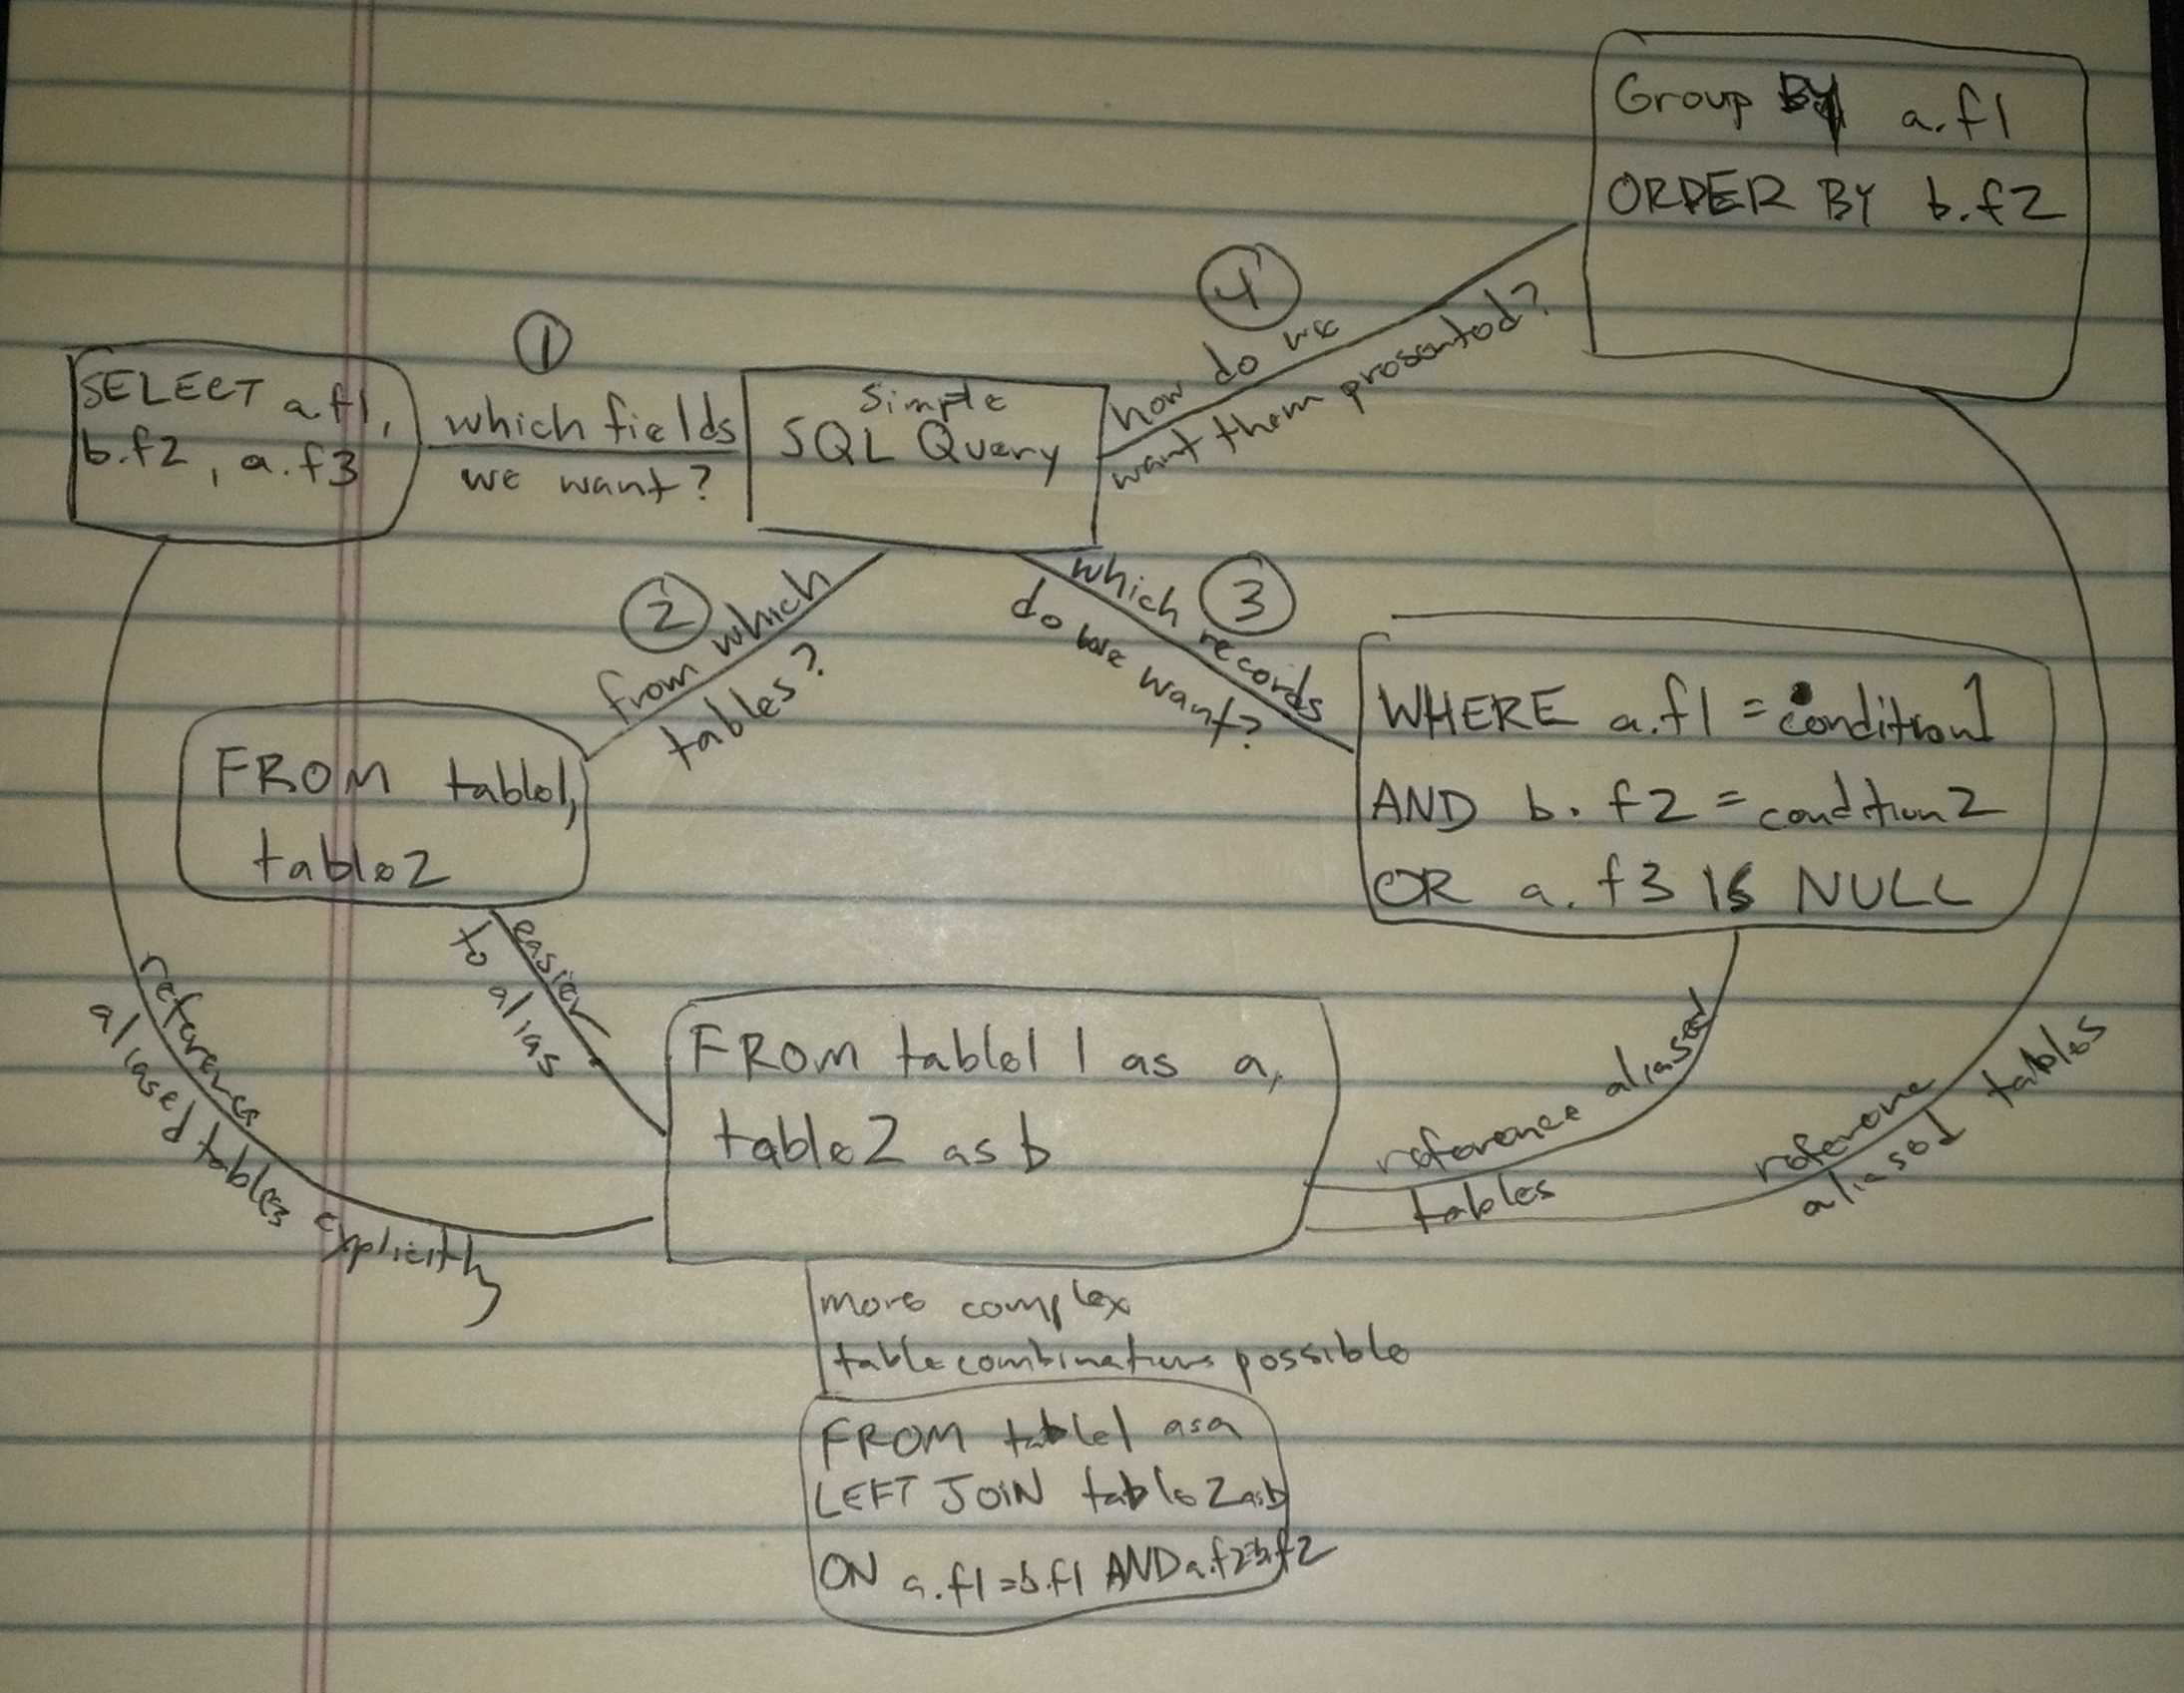 Group BY a.f1
ORDER BY b.f2
4
how do we
want them presented?
1
which fields
we want?
SELECT a.f1,
b.f2, a.f3
Simple
SQL Query
2
from which
tables?
3
which records
do we want?
FROM table1,
table2
WHERE a.f1 = condition1
AND b.f2 = condition2
OR a.f3 IS NULL
easier
to alias
FROM table1 1 as a,
table2 as b
reference
aliased tables explicitly
reference aliased
tables
reference
aliased tables
more complex
table combinations possible
FROM table1 as a
LEFT JOIN table2 as b
ON a.f1=b.f1 AND a.f2=b.f2